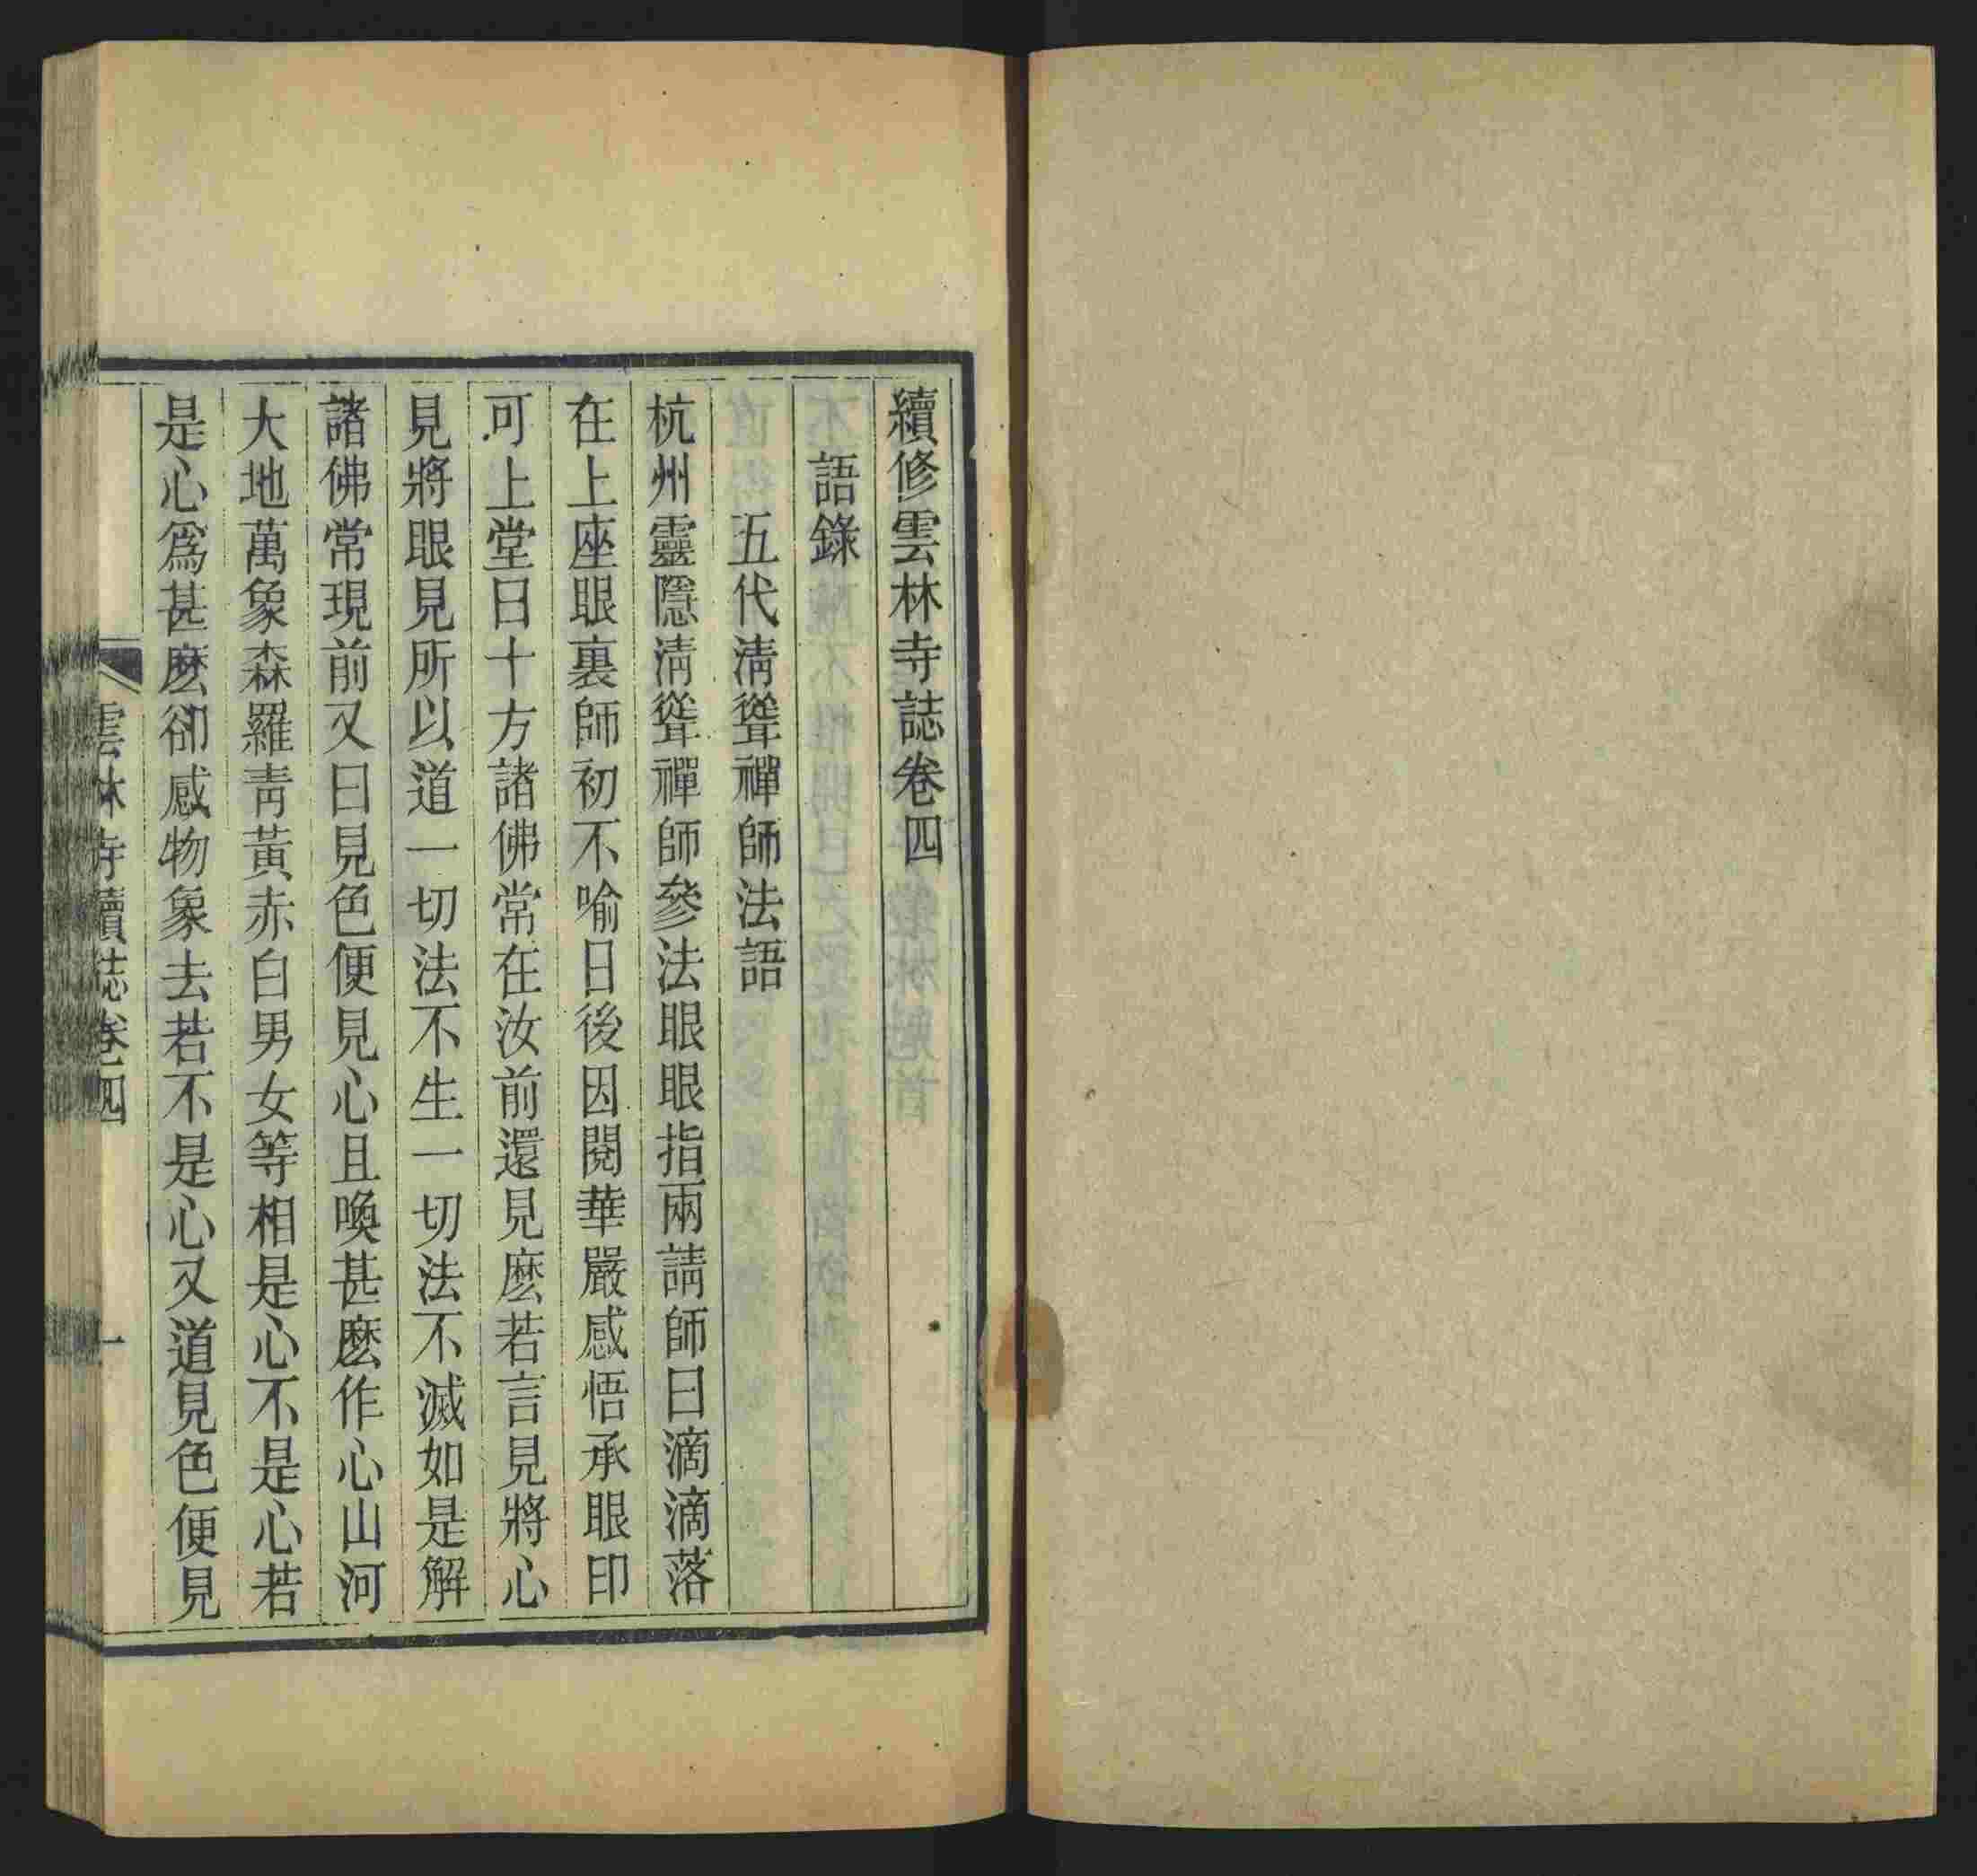 續修雲林寺誌卷四
語錄
五代淸聳禪師法語
杭州靈隱淸聳禪師參法眼眼指雨請師曰滴滴落
在上座眼裏師初不喻日後因閱華嚴感悟承眼印
可上堂曰十方諸佛常在汝前還見麽若言見將心
見將眼見所以道一切法不生一切法不滅如是解
諸佛常現前又曰見色便見心且喚甚麽作心山河
大地萬象森羅靑黃赤白男女等相是心不是心若
是心爲甚麽卻感物象去若不是心又道見色便見
雲林寺續誌卷四
一